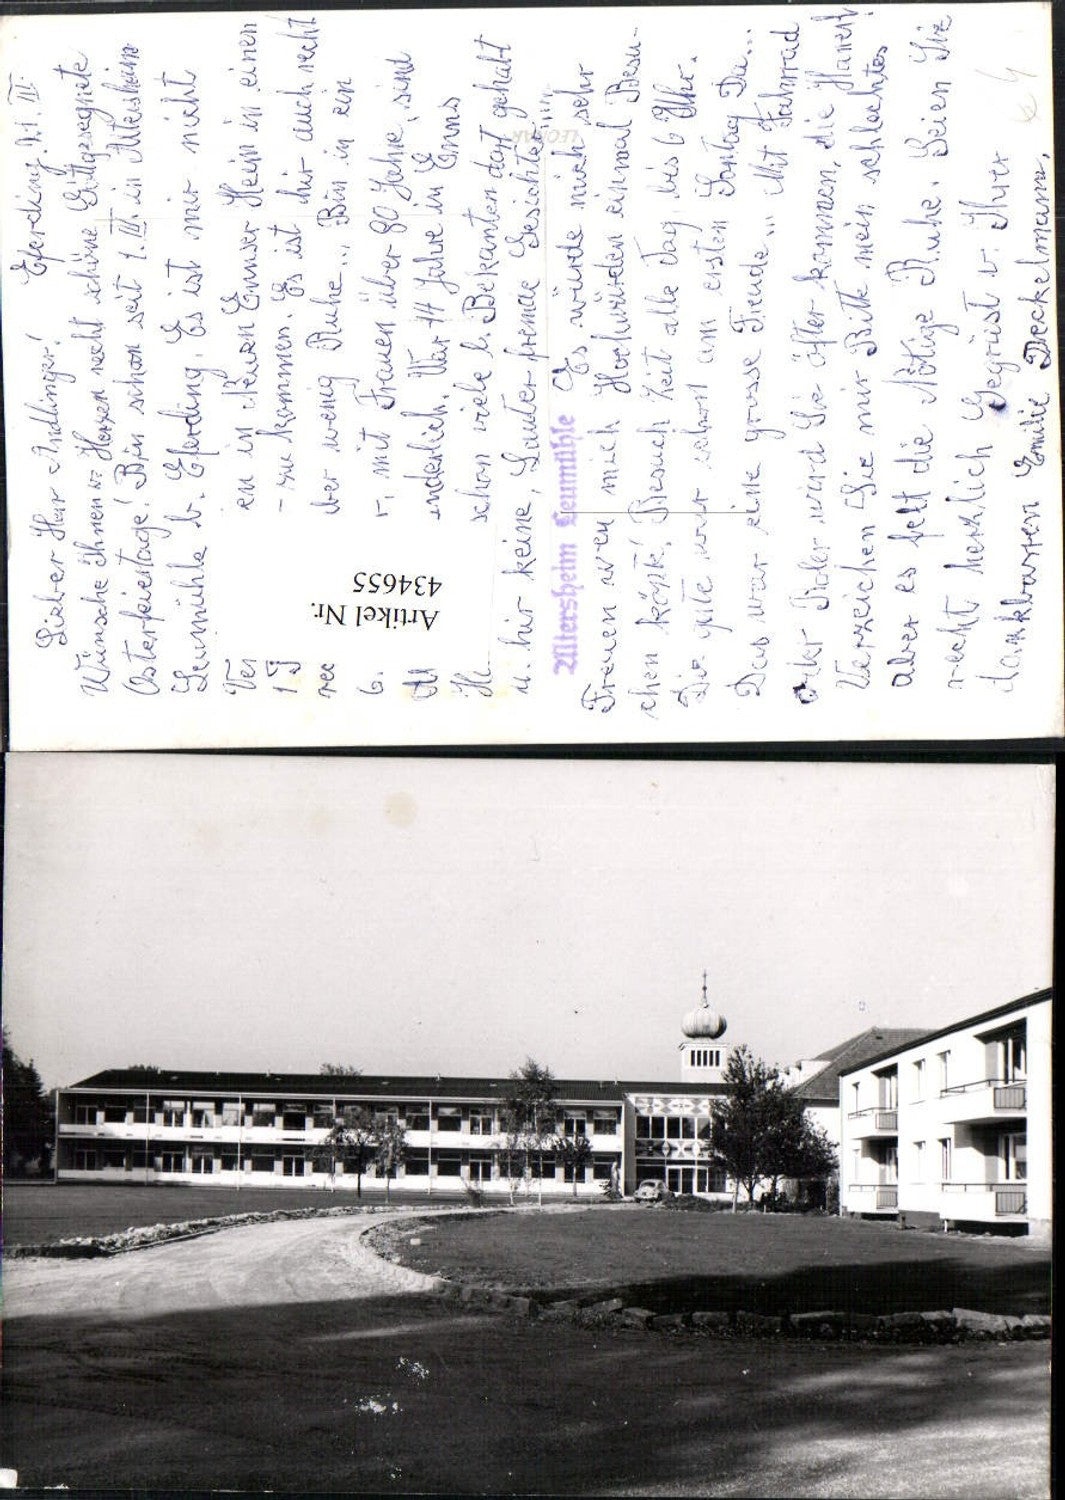 Eferding, 21. III.
Lieber Herr Andlinger!
Wünsche Ihnen v. Herzen recht schöne Gottgesegnete
Osterfeiertage! Bin schon seit 1. III. in Altersheim
Leumühle b. Eferding. Es ist mir nicht
en in Neuen Ennser Heim in einen
zu kommen. Es ist hir auch recht
ber wenig Ruhe... Bin in ein
6. v. mit Frauen über 80 Jahre, sind
inderlich. War 44 Jahre in Enns
schon viele b. Bekanten dort gehabt
u. hir keine, Lauter fremde Gesichter!!!!
Altersheim Leumühle
Es würde mich sehr
Freuen wen mich Hochwürden einmal Besu-
chen köynte! Besuch Zeit alle Tag bis 6 Uhr.
Die gute war schon am ersten Sontag Da...
Das war eine grosse Freude... Mit Fahrrad
oder Roler wird Sie öfter kommen, die Hanerl!
Verzeichen Sie mir Bitte mein schlechtes
aber es felt die Nötige Ruhe. Seien Sie
recht herzlich Gegrüst v. Ihrer
dankbarren Emilie Dreckelmann.
LEONAR
Artikel Nr.
434655